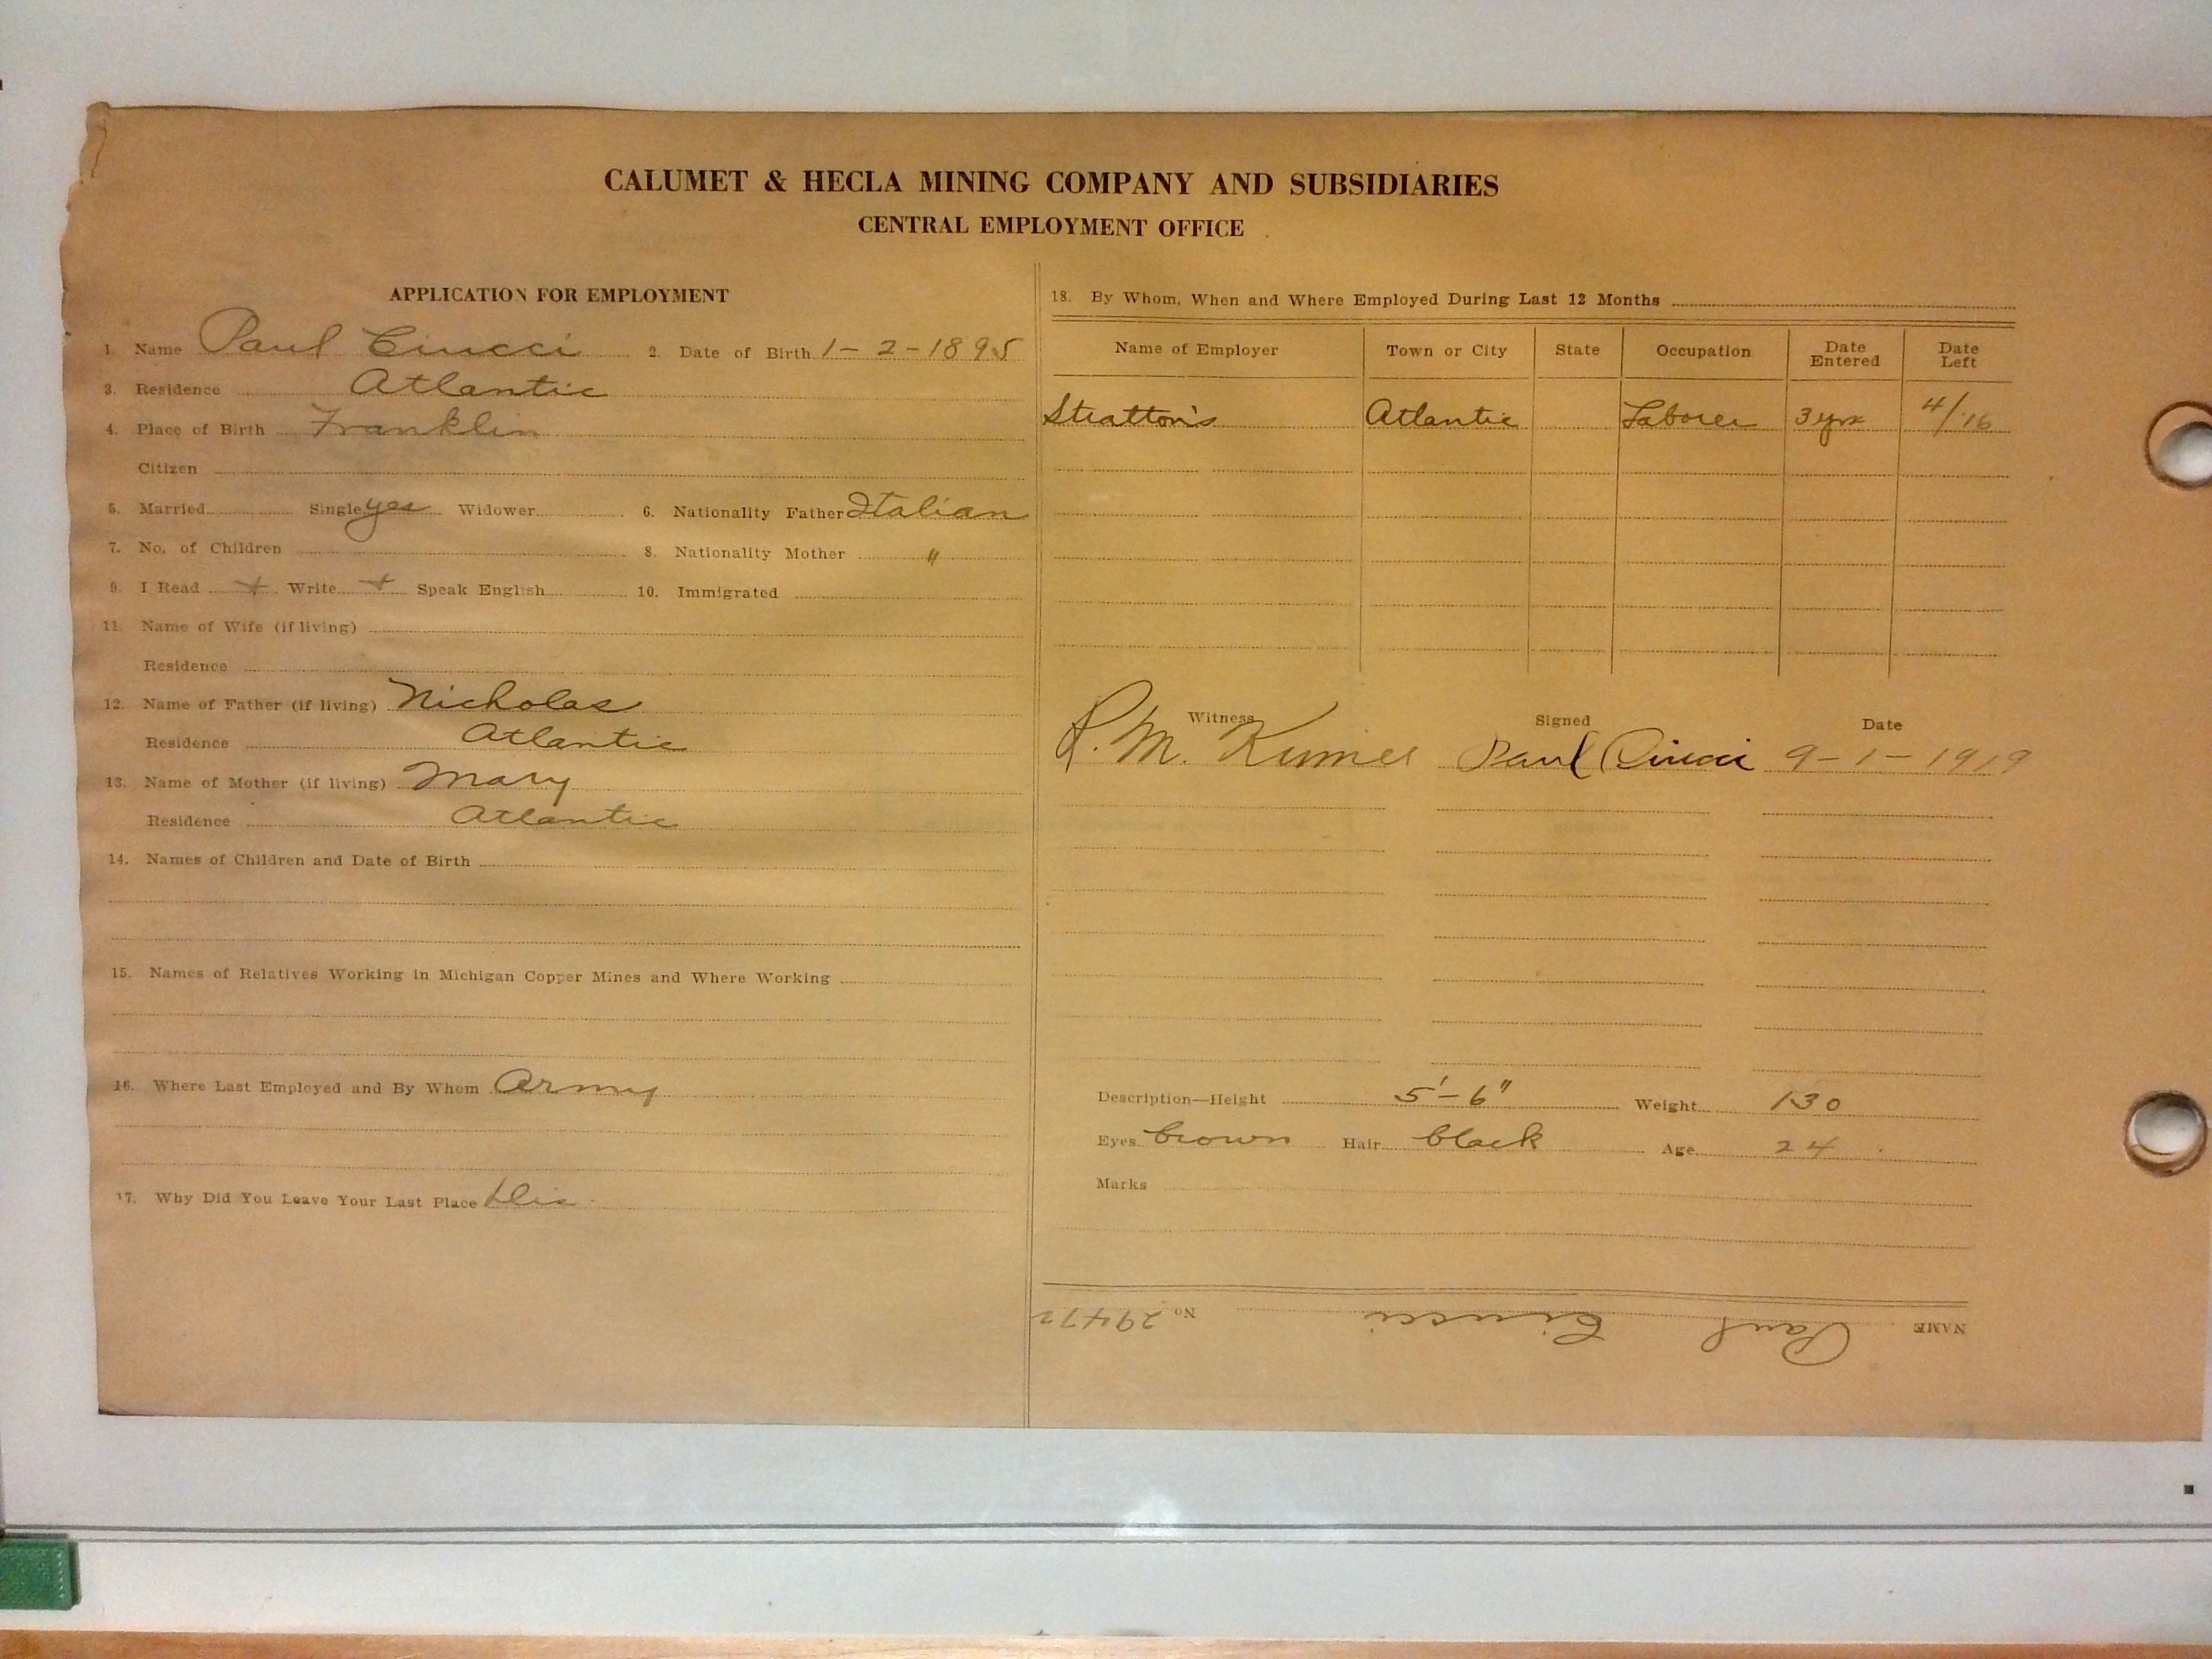 CALUMET & HECLA MINING COMPANY AND SUBSIDIARIES
CENTRAL EMPLOYMENT OFFICE
APPLICATION FOR EMPLOYMENT
1. Name Paul Ciucci 2. Date of Birth 1-2-1895
3. Residence Atlantic
4. Place of Birth Franklin
Citizen
5. Married Single yes Widower 6. Nationality Father Italian
7. No. of Children 8. Nationality Mother "
9. I Read + Write + Speak English 10. Immigrated
11. Name of Wife (if living)
Residence
12. Name of Father (if living) Nicholas
Residence Atlantic
13. Name of Mother (if living) Mary
Residence Atlantic
14. Names of Children and Date of Birth
15. Names of Relatives Working in Michigan Copper Mines and Where Working
16. Where Last Employed and By Whom Army
17. Why Did You Leave Your Last Place Dis
18. By Whom, When and Where Employed During Last 12 Months
Name of Employer Town or City State Occupation Date Entered Date Left
Stratton's Atlantic Laborer 3 yrs 4/16
Witness Signed Date
M. Paul Ciucci 9-1-1919
Description—Height 5'-6" Weight 130
Eyes brown Hair black Age 24
Marks
NAME Paul Ciucci No. 29472